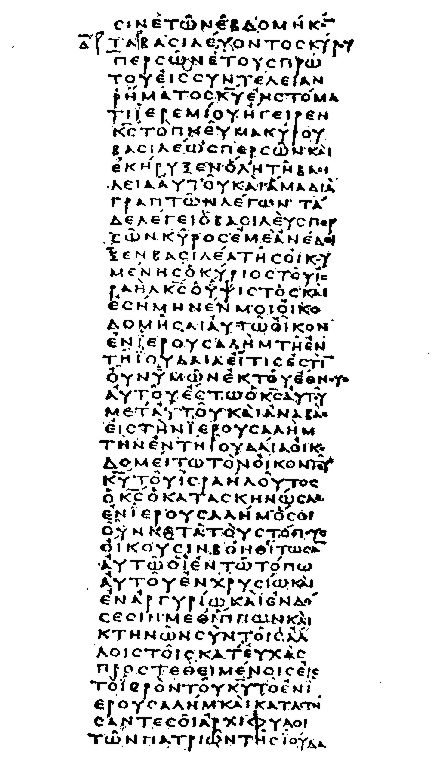 ϹΙΝ ΕΤΩΝ ΕΒΔΟΜΗΚΤ
ΤΑ ΒΑϹΙΛΕΥΟΝΤΟϹ ΚΥΡΟΥ
ΠΕΡϹΩΝ ΕΤΟΥϹ ΠΡΩ
ΤΟΥ ΕΙϹ ϹΥΝΤΕΛΕΙΑΝ
ΡΗΜΑΤΟϹ ΚΥ ΕΝ ϹΤΟΜΑ
ΤΙ ΙΕΡΕΜΙΟΥ ΗΓΕΙΡΕΝ
ΚϹ ΤΟ ΠΝΕΥΜΑ ΚΥΡΟΥ
ΒΑϹΙΛΕΩϹ ΠΕΡϹΩΝ ΚΑΙ
ΕΚΗΡΥΞΕΝ ΟΛΗ ΤΗ ΒΑϹΙ
ΛΕΙΑ ΑΥΤΟΥ ΚΑΙ ΑΜΑ ΔΙΑ
ΓΡΑΠΤΩΝ ΛΕΓΩΝ ΤΑ
ΔΕ ΛΕΓΕΙ Ο ΒΑϹΙΛΕΥϹ ΠΕΡ
ϹΩΝ ΚΥΡΟϹ ΕΜΕ ΑΝΕΔΕΙ
ΞΕΝ ΒΑϹΙΛΕΑ ΤΗϹ ΟΙΚΟΥ
ΜΕΝΗϹ Ο ΚΥΡΙΟϹ ΤΟΥ ΙϹ
ΡΑΗΛ ΚϹ Ο ΥΨΙϹΤΟϹ ΚΑΙ
ΕϹΗΜΗΝΕΝ ΜΟΙ ΟΙΚΟ
ΔΟΜΗϹΑΙ ΑΥΤΩ ΟΙΚΟΝ
ΕΝ ΙΕΡΟΥϹΑΛΗΜ ΤΗ ΕΝ
ΤΗ ΙΟΥΔΑΙΑ ΕΙ ΤΙϹ ΕϹΤΙ
ΟΥΝ ΥΜΩΝ ΕΚ ΤΟΥ ΕΘΝΟΥϹ
ΑΥΤΟΥ ΕϹΤΩ Ο ΚϹ ΑΥΤΟΥ
ΜΕΤ ΑΥΤΟΥ ΚΑΙ ΑΝΑΒΑϹ
ΕΙϹ ΤΗΝ ΙΕΡΟΥϹΑΛΗΜ
ΤΗΝ ΕΝ ΤΗ ΙΟΥΔΑΙΑ ΟΙΚΟ
ΔΟΜΕΙΤΩ ΤΟΝ ΟΙΚΟΝ ΤΟΥ
ΚΥ ΤΟΥ ΙϹΡΑΗΛ ΟΥΤΟϹ
Ο ΚϹ Ο ΚΑΤΑϹΚΗΝΩϹΑϹ
ΕΝ ΙΕΡΟΥϹΑΛΗΜ ΟϹΟΙ
ΟΥΝ ΚΑΤΑ ΤΟΥϹ ΤΟΠΟΥϹ
ΟΙΚΟΥϹΙΝ ΒΟΗΘΙΤΩϹΑΝ
ΑΥΤΩ ΟΙ ΕΝ ΤΩ ΤΟΠΩ
ΑΥΤΟΥ ΕΝ ΧΡΥϹΙΩ ΚΑΙ
ΕΝ ΑΡΓΥΡΙΩ ΚΑΙ ΕΝ ΔΟ
ϹΕϹΙ ΜΕΘ ΙΠΠΩΝ ΚΑΙ
ΚΤΗΝΩΝ ϹΥΝ ΤΟΙϹ ΑΛ
ΛΟΙϹ ΤΟΙϹ ΚΑΤ ΕΥΧΑϹ
ΠΡΟϹΤΕΘΕΙΜΕΝΟΙϹ ΕΙϹ
ΤΟ ΙΕΡΟΝ ΤΟΥ ΚΥ ΤΟ ΕΝ Ι
ΕΡΟΥϹΑΛΗΜ ΚΑΙ ΚΑΤΑϹΤΗ
ϹΑΝΤΕϹ ΟΙ ΑΡΧΙΦΥΛΟΙ
ΤΩΝ ΠΑΤΡΙΩΝ ΤΗϹ ΙΟΥΔΑ